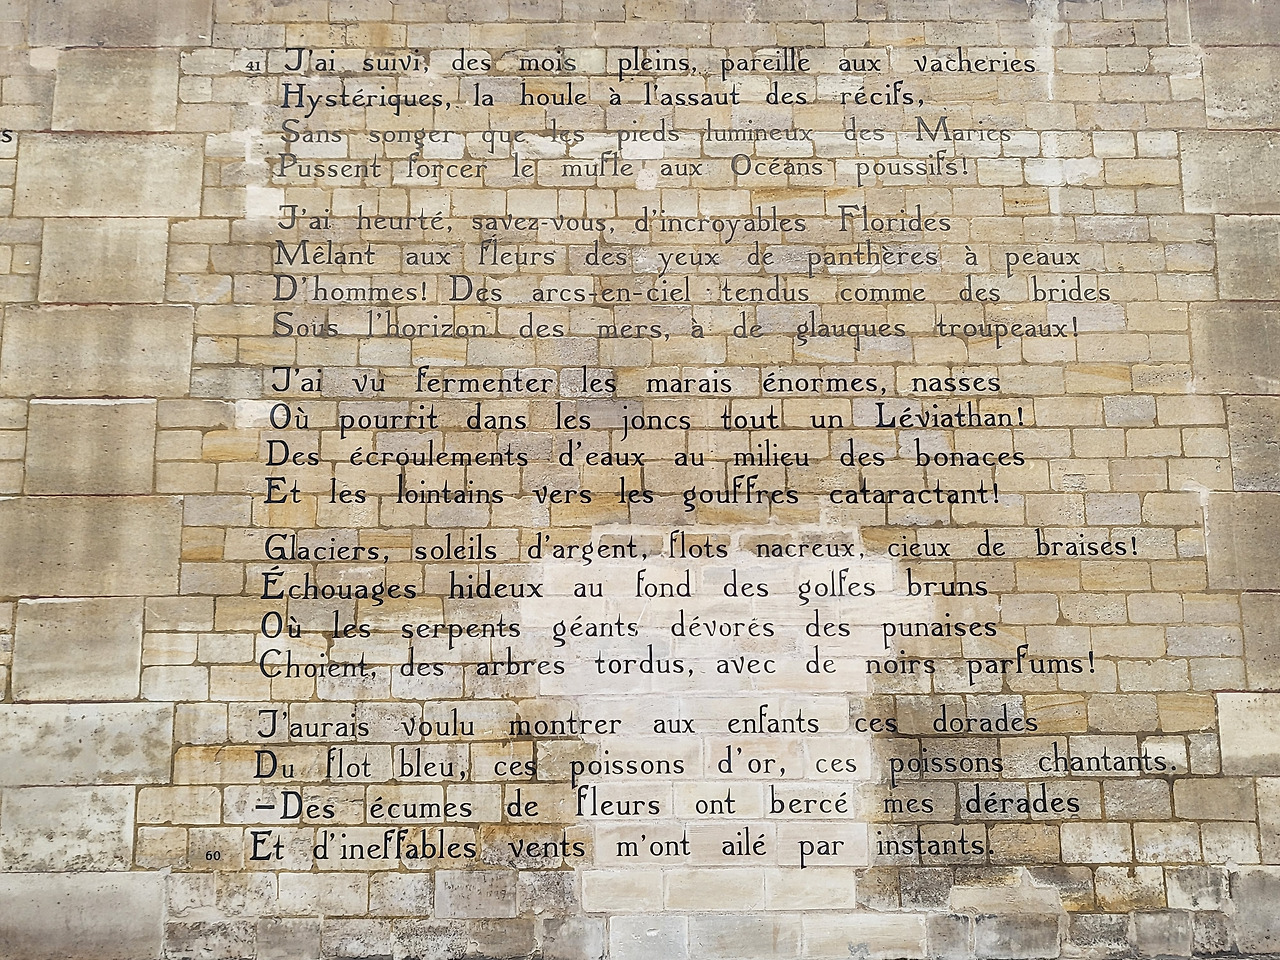 s
41 J'ai suivi, des mois pleins, pareille aux vacheries
Hystériques, la houle à l'assaut des récifs,
Sans songer que les pieds lumineux des Maries
Pussent forcer le mufle aux Océans poussifs!
J'ai heurté, savez-vous, d'incroyables Florides
Mêlant aux fleurs des yeux de panthères à peaux
D'hommes! Des arcs-en-ciel tendus comme des brides
Sous l'horizon des mers, à de glauques troupeaux!
J'ai vu fermenter les marais énormes, nasses
Où pourrit dans les joncs tout un Léviathan!
Des écroulements d'eaux au milieu des bonaces
Et les lointains vers les gouffres cataractant!
Glaciers, soleils d'argent, flots nacreux, cieux de braises!
Échouages hideux au fond des golfes bruns
Où les serpents géants dévorés des punaises
Choient, des arbres tordus, avec de noirs parfums!
J'aurais voulu montrer aux enfants ces dorades
Du flot bleu, ces poissons d'or, ces poissons chantants.
–Des écumes de fleurs ont bercé mes dérades
60 Et d'ineffables vents m'ont ailé par instants.